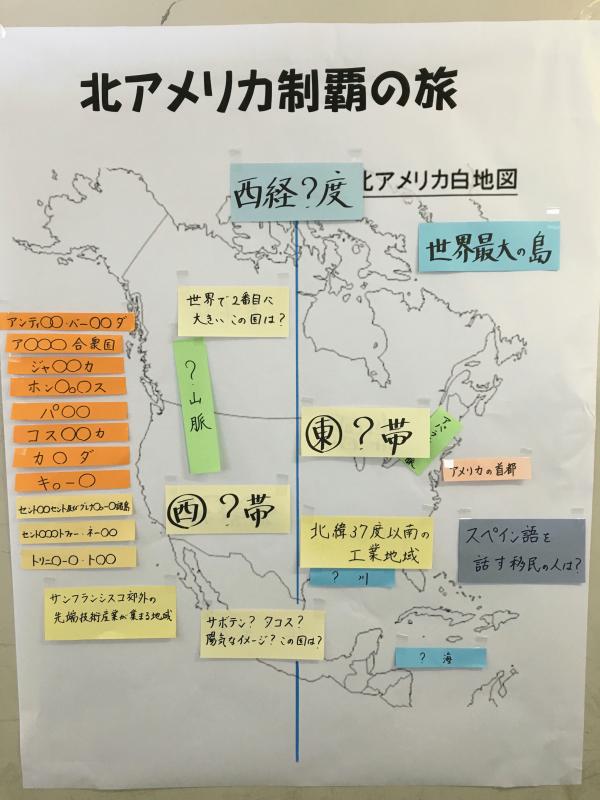 北アメリカ制覇の旅
西経?度
北アメリカ白地図
世界最大の島
世界で2番目に
大きいこの国は?
アンティ〇〇・バー〇〇ダ
ア〇〇〇合衆国
ジャ〇〇カ
ホン〇〇ス
パ〇〇
コス〇〇カ
カ〇ダ
キ〇ー〇
セント〇〇〇トファー・ネー〇〇
トリニ〇ー〇・ト〇〇
?山脈
東?帯
アメリカの首都
西?帯
北緯37度以南の
工業地域
スペイン語を
話す移民の人は?
?川
サンフランシスコ郊外の
先端技術産業が集まる地域
サボテン?タコス?
陽気なイメージ?この国は?
?海